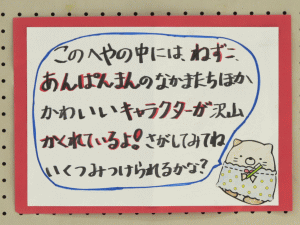 このへやの中には、ねずこ、
あんぱんまんのなかまたちほか
かわいいキャラクターが沢山
かくれているよ!さがしてみてね
いくつみつけられるかな?